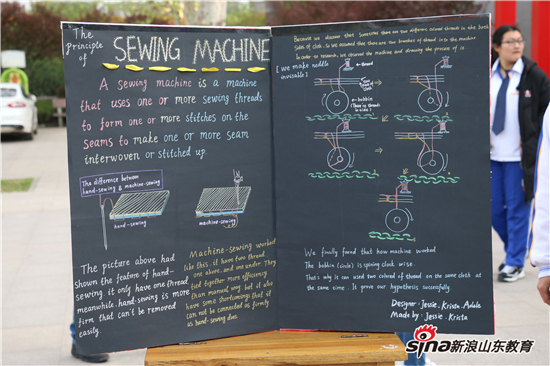 The
Principle
of
SEWING MACHINE
A sewing machine is a machine
that uses one or more sewing threads
to form one or more stitches on the
seams to make one or more seam
interwoven or stitched up.
The difference between
hand-sewing & machine-sewing
hand-sewing
machine-sewing
The picture above had
shown the feature of hand-
sewing, it only have one thread,
meanwhile, hand-sewing is more
firm that can't be removed
easily.
Machine-sewing worked
like this, it have two thread,
one above, and one under. They
food together more efficiency
than manual way, but it also
have some shortcomings that it
can not be connected as firmly
as hand-sewing does.
Because we discover that sometimes there are two different colored threads in the both
sides of cloth. So we assumed that there are two bunches of thread into the machine
In order to research, we observed the machine and drawing the process of it.
[we make neddle
invisible]
thread
bobbin
(There is
threads
in side)
We finally fored that how machine worked
The bobbin (circle) is spining clock wise.
That's why it can used two colored of thread on the same cloth at
the same time. It prove our hypothesis successfully.
Designer: Jessie. Krista. Adele
Made by: Jessie. Krista
sina新浪山东教育